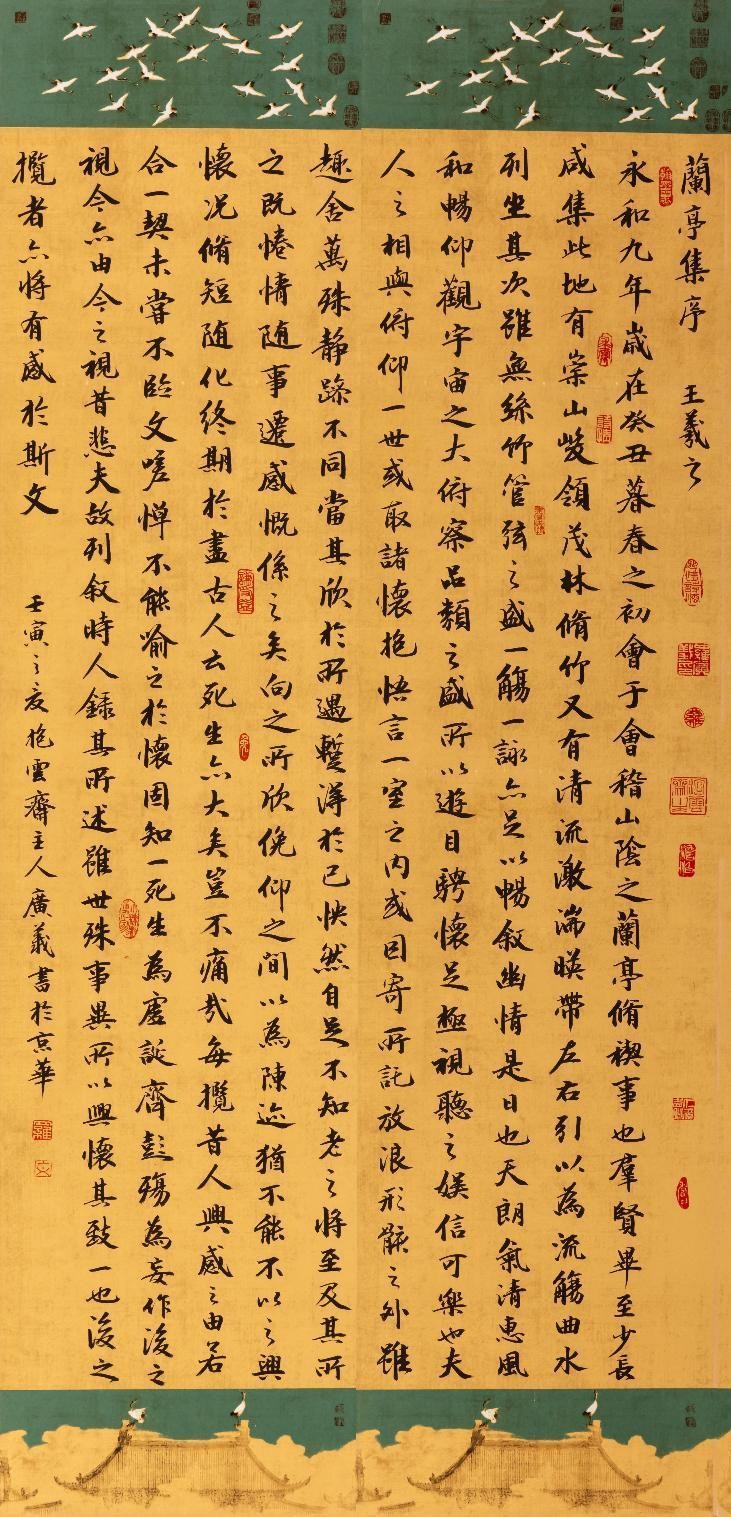 蘭亭集序 王羲之
永和九年歲在癸丑暮春之初會于會稽山陰之蘭亭脩禊事也羣賢畢至少長
咸集此地有崇山峻領茂林脩竹又有清流激湍暎帶左右引以為流觴曲水
列坐其次雖無絲竹管弦之盛一觴一詠亦足以暢叙幽情是日也天朗氣清惠風
和暢仰觀宇宙之大俯察品類之盛所以遊目騁懷足極視聽之娛信可樂也夫
人之相與俯仰一世或取諸懷抱悟言一室之內或因寄所託放浪形骸之外雖
趣舍萬殊靜躁不同當其欣於所遇蹔得於己怏然自足不知老之將至及其所
之既惓情随事遷感慨係之矣向之所欣俛仰之間以為陳迹猶不能不以之興
懷況脩短随化終期於盡古人云死生亦大矣豈不痛哉每攬昔人興感之由若
合一契未嘗不臨文嗟悼不能喻之於懷固知一死生為虛誕齊彭殤為妄作後之
視今亦由今之視昔悲夫故列叙時人録其所述雖世殊事異所以興懷其致一也後之
攬者亦將有感於斯文
壬寅之夏抱雲齋主人廣義書於京華